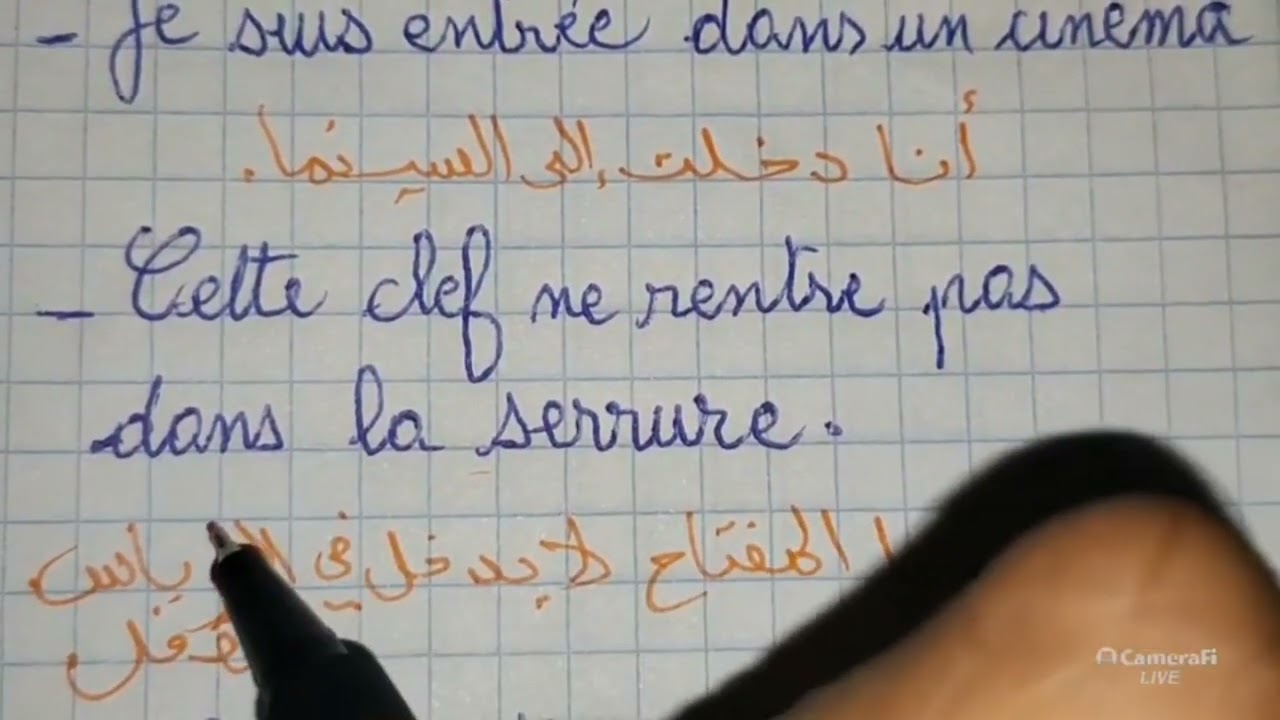 - Je suis entrée dans un cinema
أنا دخلت إلى السينما.
- Cette clef ne rentre pas
dans la serrure.
المفتاح لا يدخل في
CameraFi
LIVE